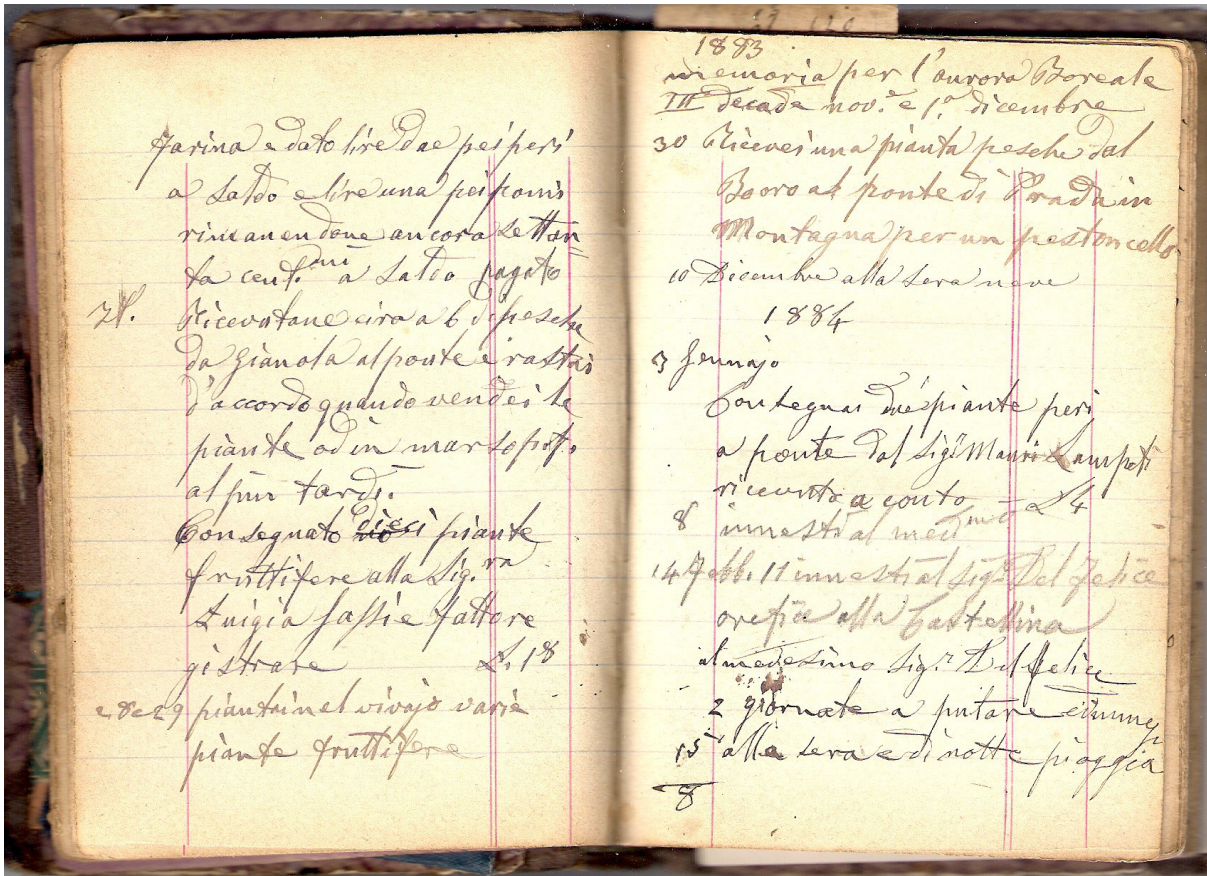 farina e dato lire due pei peri
a saldo e lire una pei pomi
rimanendone ancora settan=
ta cent.mi a saldo pagato
Ricevutane circa 6 di pesche
da Gianola al ponte e rastai
d'accordo quando vendei le
piante od in marso
al piu tardi.
Consegnato dieci piante
fruttifere alla Sig.ra
Luigia Sassi e fattore
gistrare L. 18
28e29 piantai nel vivajo varie
piante fruttifere
1883
memoria per l'aurora Boreale
III decade nov.e e 1.a dicembre
30 Ricevei una pianta pesche dal
Booro al ponte di Prada in
Montagna per un pestoncello
10 Dicembre alla sera neve
1884
3 Gennajo
Consegnai due piante peri
a ponte dal Sig.r Mauri
ricevuto a conto L 4
8 innesti al med.mo
14 Febb. 11 innesti al Sig.r Del Felice
orefice alla Castellina
al medesimo Sig.r Del Felice
2 giornate a putare
15 alla sera e di notte pioggia
8